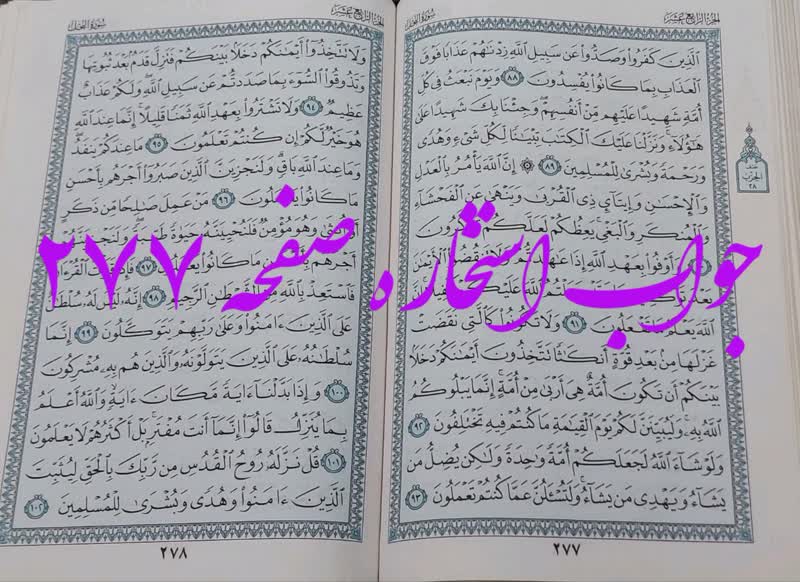 الجزء الرابع عشر
سورة النحل
ٱلَّذِينَ كَفَرُوا۟ وَصَدُّوا۟ عَن سَبِيلِ ٱللَّهِ زِدْنَٰهُمْ عَذَابًا فَوْقَ
ٱلْعَذَابِ بِمَا كَانُوا۟ يُفْسِدُونَ ٨٨ وَيَوْمَ نَبْعَثُ فِى كُلِّ
أُمَّةٍ شَهِيدًا عَلَيْهِم مِّنْ أَنفُسِهِمْ وَجِئْنَا بِكَ شَهِيدًا عَلَىٰ
هَٰٓؤُلَآءِ وَنَزَّلْنَا عَلَيْكَ ٱلْكِتَٰبَ تِبْيَٰنًا لِّكُلِّ شَىْءٍ وَهُدًى
وَرَحْمَةً وَبُشْرَىٰ لِلْمُسْلِمِينَ ٨٩ ۞ إِنَّ ٱللَّهَ يَأْمُرُ بِٱلْعَدْلِ
وَٱلْإِحْسَٰنِ وَإِيتَآئِ ذِى ٱلْقُرْبَىٰ وَيَنْهَىٰ عَنِ ٱلْفَحْشَآءِ
وَٱلْمُنكَرِ وَٱلْبَغْىِ يَعِظُكُمْ لَعَلَّكُمْ تَذَكَّرُونَ
وَأَوْفُوا۟ بِعَهْدِ ٱللَّهِ إِذَا عَٰهَدتُّمْ وَلَا تَنقُضُوا۟ ٱلْأَيْمَٰنَ
بَعْدَ تَوْكِيدِهَا جَعَلْتُمُ ٱللَّهَ عَلَيْكُمْ
ٱللَّهَ يَعْلَمُ مَا تَفْعَلُونَ ٩١ وَلَا تَكُونُوا۟ كَٱلَّتِى نَقَضَتْ
غَزْلَهَا مِنۢ بَعْدِ قُوَّةٍ أَنكَٰثًا تَتَّخِذُونَ أَيْمَٰنَكُمْ دَخَلًۢا
بَيْنَكُمْ أَن تَكُونَ أُمَّةٌ هِىَ أَرْبَىٰ مِنْ أُمَّةٍ إِنَّمَا يَبْلُوكُمُ
ٱللَّهُ بِهِۦ وَلَيُبَيِّنَنَّ لَكُمْ يَوْمَ ٱلْقِيَٰمَةِ مَا كُنتُمْ فِيهِ تَخْتَلِفُونَ ٩٢
وَلَوْ شَآءَ ٱللَّهُ لَجَعَلَكُمْ أُمَّةً وَٰحِدَةً وَلَٰكِن يُضِلُّ مَن
يَشَآءُ وَيَهْدِى مَن يَشَآءُ وَلَتُسْـَٔلُنَّ عَمَّا كُنتُمْ تَعْمَلُونَ ٩٣
٢٧٧
الحزب
٢٨
جواب استخاره صفحه ۲۷۷
الجزء الرابع عشر
سورة النحل
وَلَا تَتَّخِذُوٓا۟ أَيْمَٰنَكُمْ دَخَلًۢا بَيْنَكُمْ فَتَزِلَّ قَدَمٌۢ بَعْدَ ثُبُوتِهَا
وَتَذُوقُوا۟ ٱلسُّوٓءَ بِمَا صَدَدتُّمْ عَن سَبِيلِ ٱللَّهِ وَلَكُمْ عَذَابٌ
عَظِيمٌ ٩٤ وَلَا تَشْتَرُوا۟ بِعَهْدِ ٱللَّهِ ثَمَنًا قَلِيلًا إِنَّمَا عِندَ ٱللَّهِ
هُوَ خَيْرٌ لَّكُمْ إِن كُنتُمْ تَعْلَمُونَ ٩٥ مَا عِندَكُمْ يَنفَدُ
وَمَا عِندَ ٱللَّهِ بَاقٍ وَلَنَجْزِيَنَّ ٱلَّذِينَ صَبَرُوٓا۟ أَجْرَهُم بِأَحْسَنِ
مَا كَانُوا۟ يَعْمَلُونَ ٩٦ مَنْ عَمِلَ صَٰلِحًا مِّن ذَكَرٍ
أَوْ أُنثَىٰ وَهُوَ مُؤْمِنٌ فَلَنُحْيِيَنَّهُۥ حَيَوٰةً طَيِّبَةً وَلَنَجْزِيَنَّهُمْ
أَجْرَهُم مَا كَانُوا۟ يَعْمَلُونَ ٩٧ فَإِذَا قَرَأْتَ ٱلْقُرْءَانَ
فَٱسْتَعِذْ بِٱللَّهِ مِنَ ٱلشَّيْطَٰنِ ٱلرَّجِيمِ ٩٨ إِنَّهُۥ لَيْسَ لَهُۥ سُلْطَٰنٌ
عَلَى ٱلَّذِينَ ءَامَنُوا۟ وَعَلَىٰ رَبِّهِمْ يَتَوَكَّلُونَ ٩٩ إِنَّمَا
سُلْطَٰنُهُۥ عَلَى ٱلَّذِينَ يَتَوَلَّوْنَهُۥ وَٱلَّذِينَ هُم بِهِۦ مُشْرِكُونَ
١٠٠ وَإِذَا بَدَّلْنَآ ءَايَةً مَّكَانَ ءَايَةٍ وَٱللَّهُ أَعْلَمُ
بِمَا يُنَزِّلُ قَالُوٓا۟ إِنَّمَآ أَنتَ مُفْتَرٍۭ بَلْ أَكْثَرُهُمْ لَا يَعْلَمُونَ
١٠١ قُلْ نَزَّلَهُۥ رُوحُ ٱلْقُدُسِ مِن رَّبِّكَ بِٱلْحَقِّ لِيُثَبِّتَ
ٱلَّذِينَ ءَامَنُوا۟ وَهُدًى وَبُشْرَىٰ لِلْمُسْلِمِينَ ١٠٢
٢٧٨